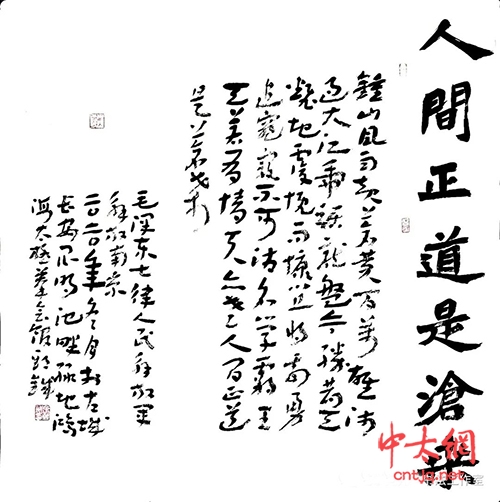 人間正道是滄桑
鍾山風雨起蒼黄百萬雄師
过大江虎踞龍盤今勝昔天
翻地覆慨而慷宜將剩勇
追窮寇不可沽名學霸王
天若有情天亦老人间正道
是滄桑
毛澤东七律人民解放軍
解放南京
二〇二〇年冬月於古城
长安昆明池畔绿地
中太網
cntjq.net
工作室